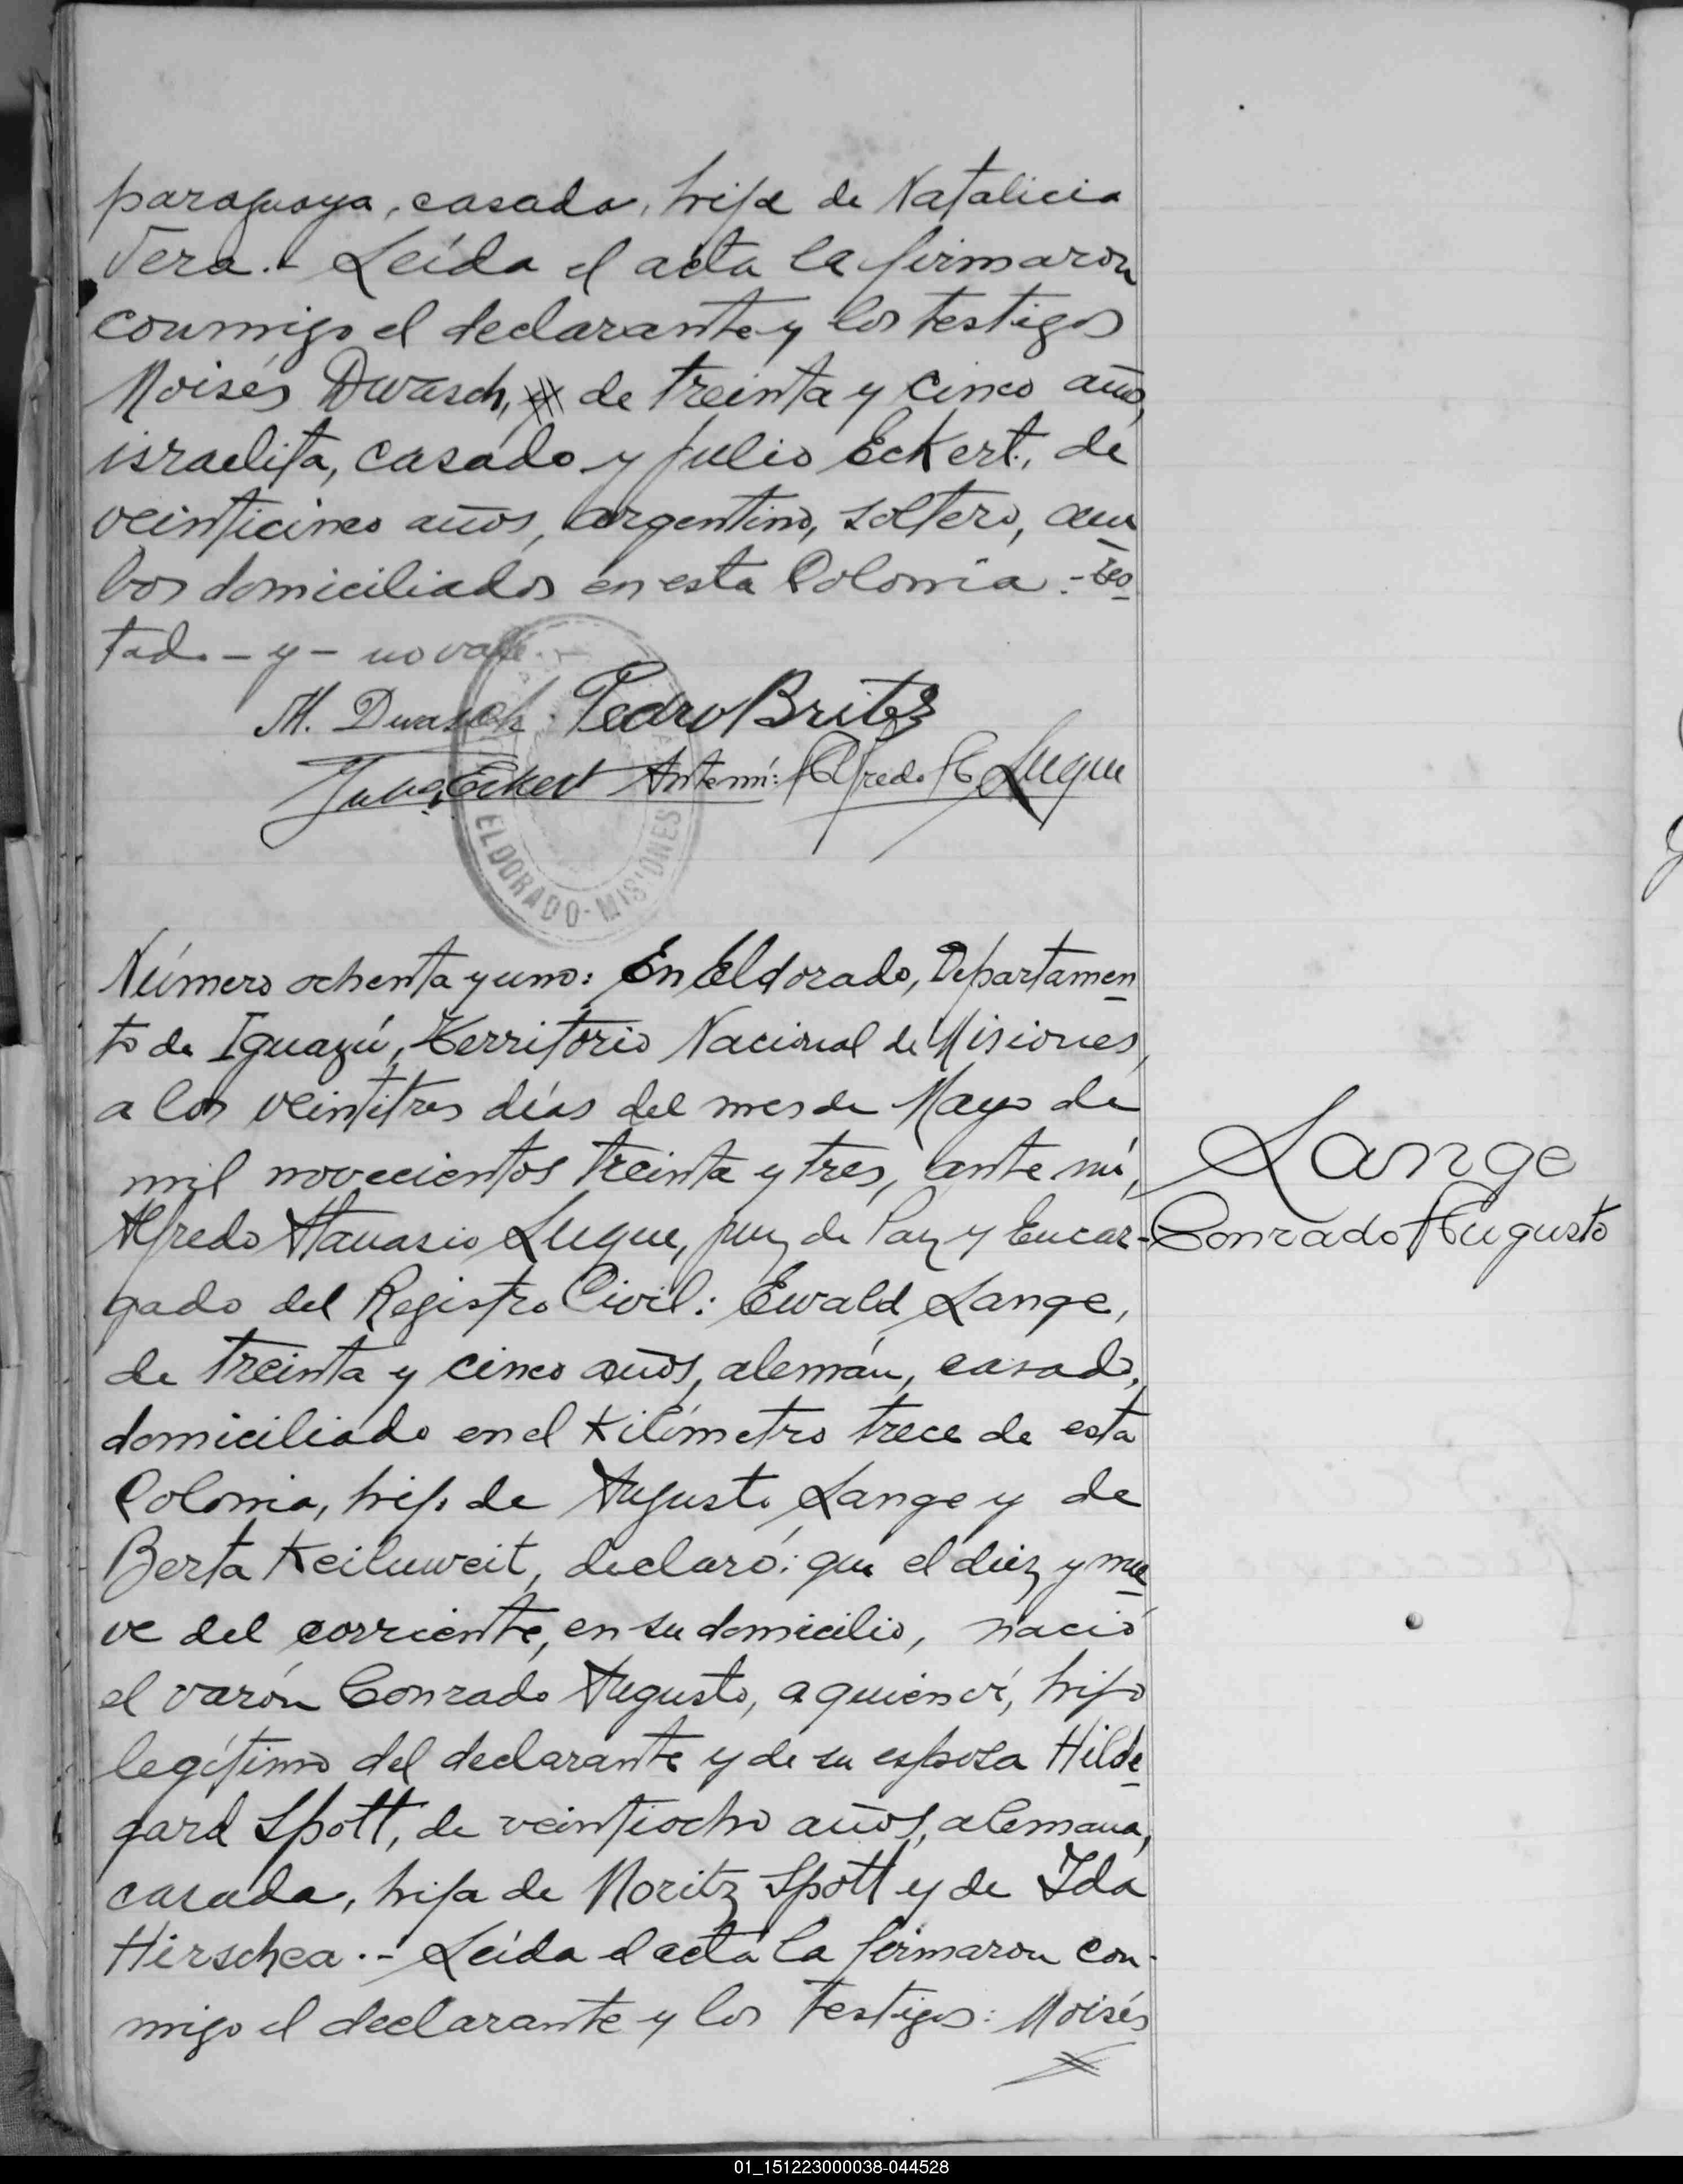 paraguaya, casada, hija de Natalicia
Vera.- Leída el acta la firmaron
conmigo el declarante y los testigos
Moisés Dwasch, y de treinta y cinco años,
israelita, casado y Julio Eckert, de
veinticinco años, argentino, soltero, am
bos domiciliados en esta Colonia.- Tes
tado - y - no vale.-
M. Dwasch. Pedro Britez
Julio Eckert Ante mí: Alfredo A Luque
ELDORADO - MISIONES
Número ochenta y uno: En Eldorado, Departamen
to de Iguazú, Territorio Nacional de Misiones,
a los veintitres días del mes de Mayo de
mil novecientos treinta y tres, ante mí,
Lange
Alfredo Atanasio Luque, juez de Paz y Encar-
Conrado Augusto
gado del Registro Civil: Ewald Lange,
de treinta y cinco años, alemán, casado,
domiciliado en el Kilómetro trece de esta
Colonia, hijo de Augusto Lange y de
Berta Keiluweit, declaró: que el diez y nue
ve del corriente, en su domicilio, nació
el varón Conrado Augusto, a quien ví, hijo
legítimo del declarante y de su esposa Hilde
gard Spott, de veintiocho años, alemana,
casada, hija de Moritz Spott y de Ida
Hirschea.- Leída el acta la firmaron con-
migo el declarante y los testigos: Moisés
01_151223000038-044528